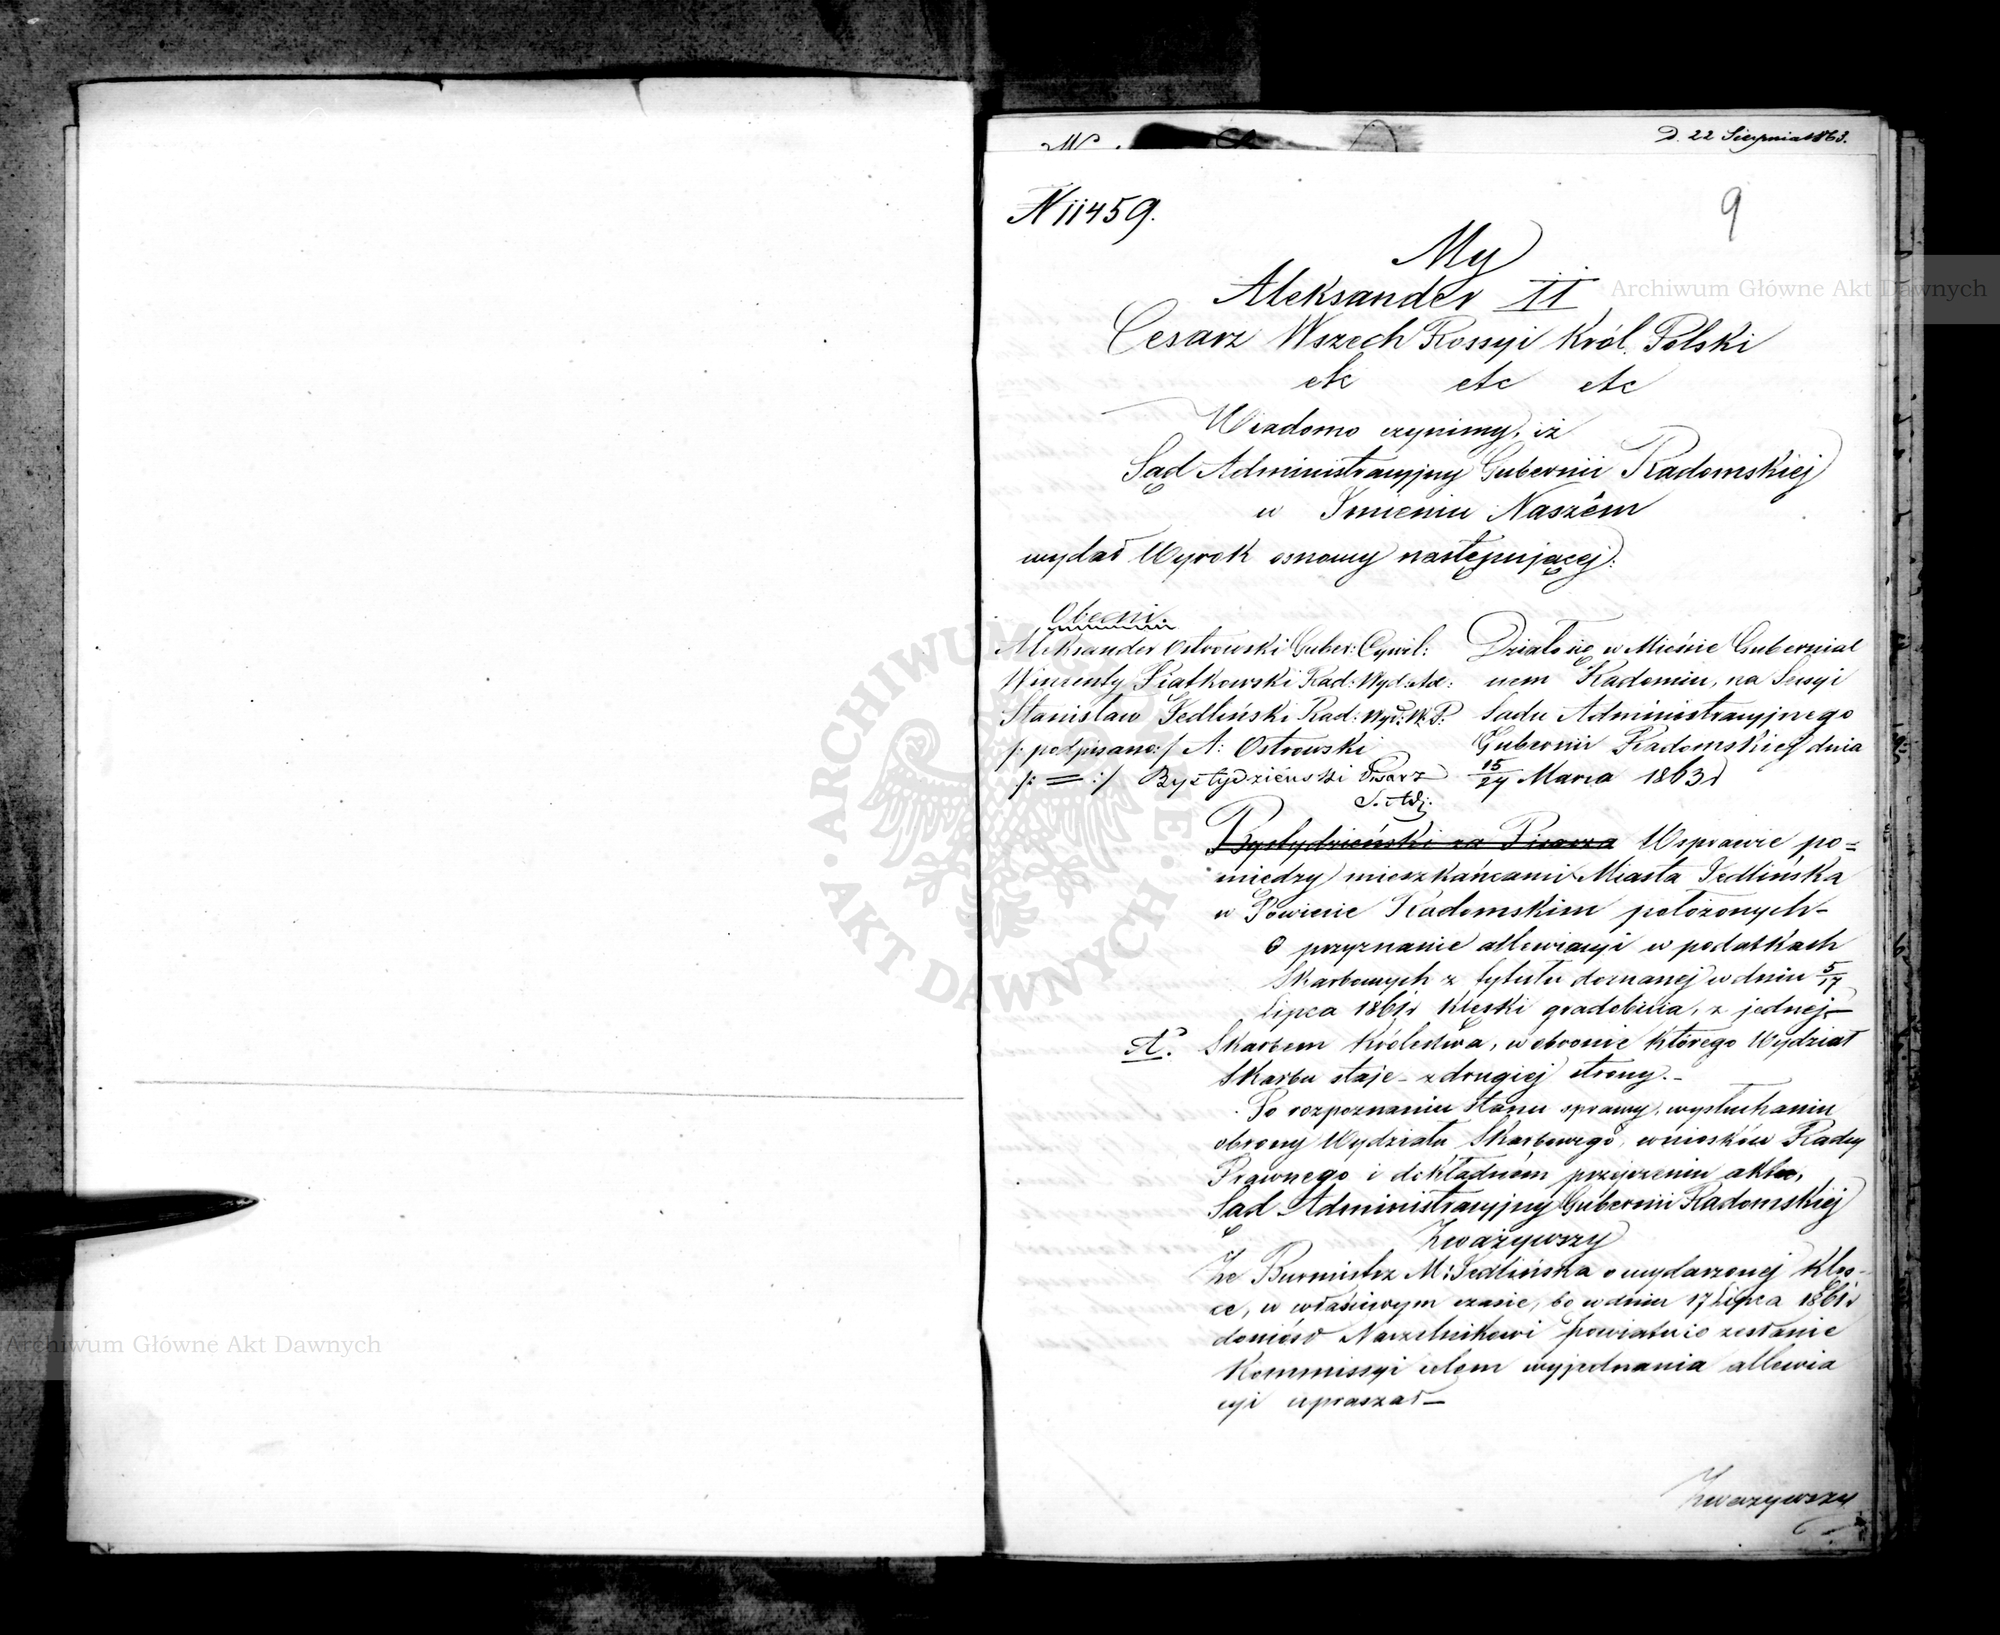 D. 22 Sierpnia 1863.
N 11459.
9
My
Aleksander II
Cesarz Wszech Rossyi Król. Polski
etc etc etc
Wiadomo czynimy, iż
Sąd Administracyjny Gubernii Radomskiej
w Imieniu Naszém
wydał Wyrok osnowy następującej:
Obecni:
Aleksander Ostrowski Guber: Cywil:
Wincenty Siatkowski Rad: Wyd: Ad:
Stanisław Jedliński Rad: Wyd: W. P.
/: podpisano:/ A: Ostrowski
/: = :/ Bystydzieński Pisarz
S. Adj.
Działo się w Mieście Gubernial
nem Radomiu, na Sessyi
Sadu Administracyjnego
Gubernii Radomskiej dnia
15/27 Marca 1863 r
Bystydzieński za Pisarza W sprawie po=
między mieszkańcami Miasta Jedlińska
w Powiecie Radomskim położonych-
o przyznanie allewiacyi w podatkach
Skarbowych z tytułu doznanej w dniu 5/17
Lipca 1861 r klęski gradobicia, z jednej-
A. Skarbem Królestwa, w obronie którego Wydział
Skarbu staje - z drugiej strony.-
Po rozpoznaniu stanu sprawy, wysłuchaniu
obrony Wydziału Skarbowego, wniosków Radcy
Prawnego i dokładném przejrzeniu aktów,
Sąd Administracyjny Gubernii Radomskiej
Zważywszy
Że Burmistrz M: Jedlińska o wydarzonej klęs-
ce, w właściwym czasie, bo w dniu 17 Lipca 1861 r
doniósł Naczelnikowi Powiatu i o zesłanie
Kommissyi celem wyjednania allewia
cyi upraszał -
Zważywszy
Archiwum Główne Akt Dawnych
Archiwum Główne Akt Dawnych
ARCHIWUM GŁÓWNE · AKT DAWNYCH ·